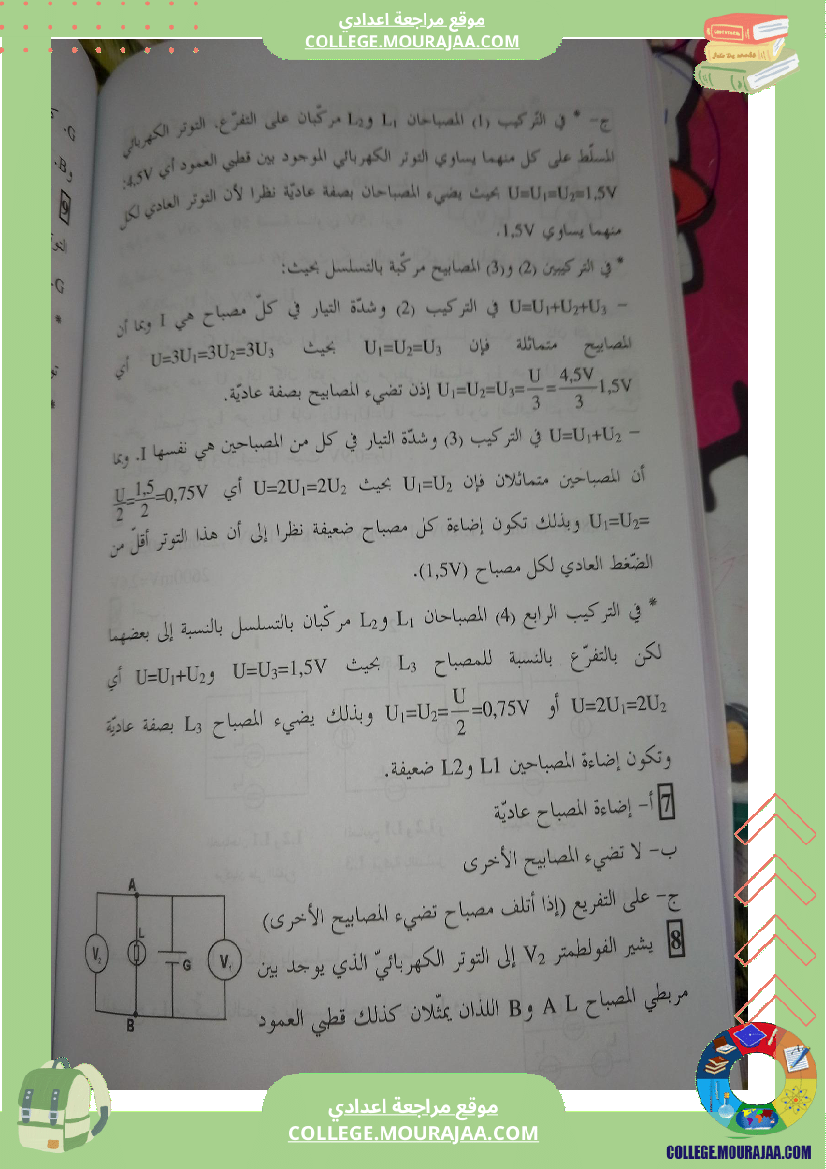 موقع مراجعة اعدادي
COLLEGE.MOURAJAA.COM
ج- * في التركيب (1) المصباحان L1 وL2 مركّبان على التفرّع. التوتر الكهربائي
المسلّط على كل منهما يساوي التوتر الكهربائي الموجود بين قطبي العمود أي 4,5V:
U=U1=U2=1,5V بحيث يضيء المصباحان بصفة عاديّة نظرا لأن التوتر العادي لكل
منهما يساوي 1,5V.
* في التركيبين (2) و(3) المصابيح مركّبة بالتسلسل بحيث:
– U=U1+U2+U3 في التركيب (2) وشدّة التيار في كلّ مصباح هي I وبما أن
المصابيح متماثلة فإن U1=U2=U3 بحيث U=3U1=3U2=3U3 أي
U1=U2=U3=U/3=4,5V/3 1,5V إذن تضيء المصابيح بصفة عاديّة.
– U=U1+U2 في التركيب (3) وشدّة التيار في كل من المصباحين هي نفسها I. وبما
أن المصباحين متماثلان فإن U1=U2 بحيث U=2U1=2U2 أي U/2=1,5/2=0,75V
U1=U2= وبذلك تكون إضاءة كل مصباح ضعيفة نظرا إلى أن هذا التوتر أقلّ من
الضّغط العادي لكل مصباح (1,5V).
* في التركيب الرابع (4) المصباحان L1 وL2 مركّبان بالتسلسل بالنسبة إلى بعضهما
لكن بالتفرّع بالنسبة للمصباح L3 بحيث U=U3=1,5V وU=U1+U2 أي
U=2U1=2U2 أو U1=U2=U/2=0,75V وبذلك يضيء المصباح L3 بصفة عاديّة
وتكون إضاءة المصباحين L1 وL2 ضعيفة.
7 أ- إضاءة المصباح عاديّة
ب- لا تضيء المصابيح الأخرى
ج- على التفريع (إذا أتلف مصباح تضيء المصابيح الأخرى)
8 يشير الفولطمتر V2 إلى التوتر الكهربائيّ الذي يوجد بين
مربطي المصباح A L وB اللذان يمثّلان كذلك قطبي العمود
A
L
V2
G
V1
B
موقع مراجعة اعدادي
COLLEGE.MOURAJAA.COM
COLLEGE.MOURAJAA.COM